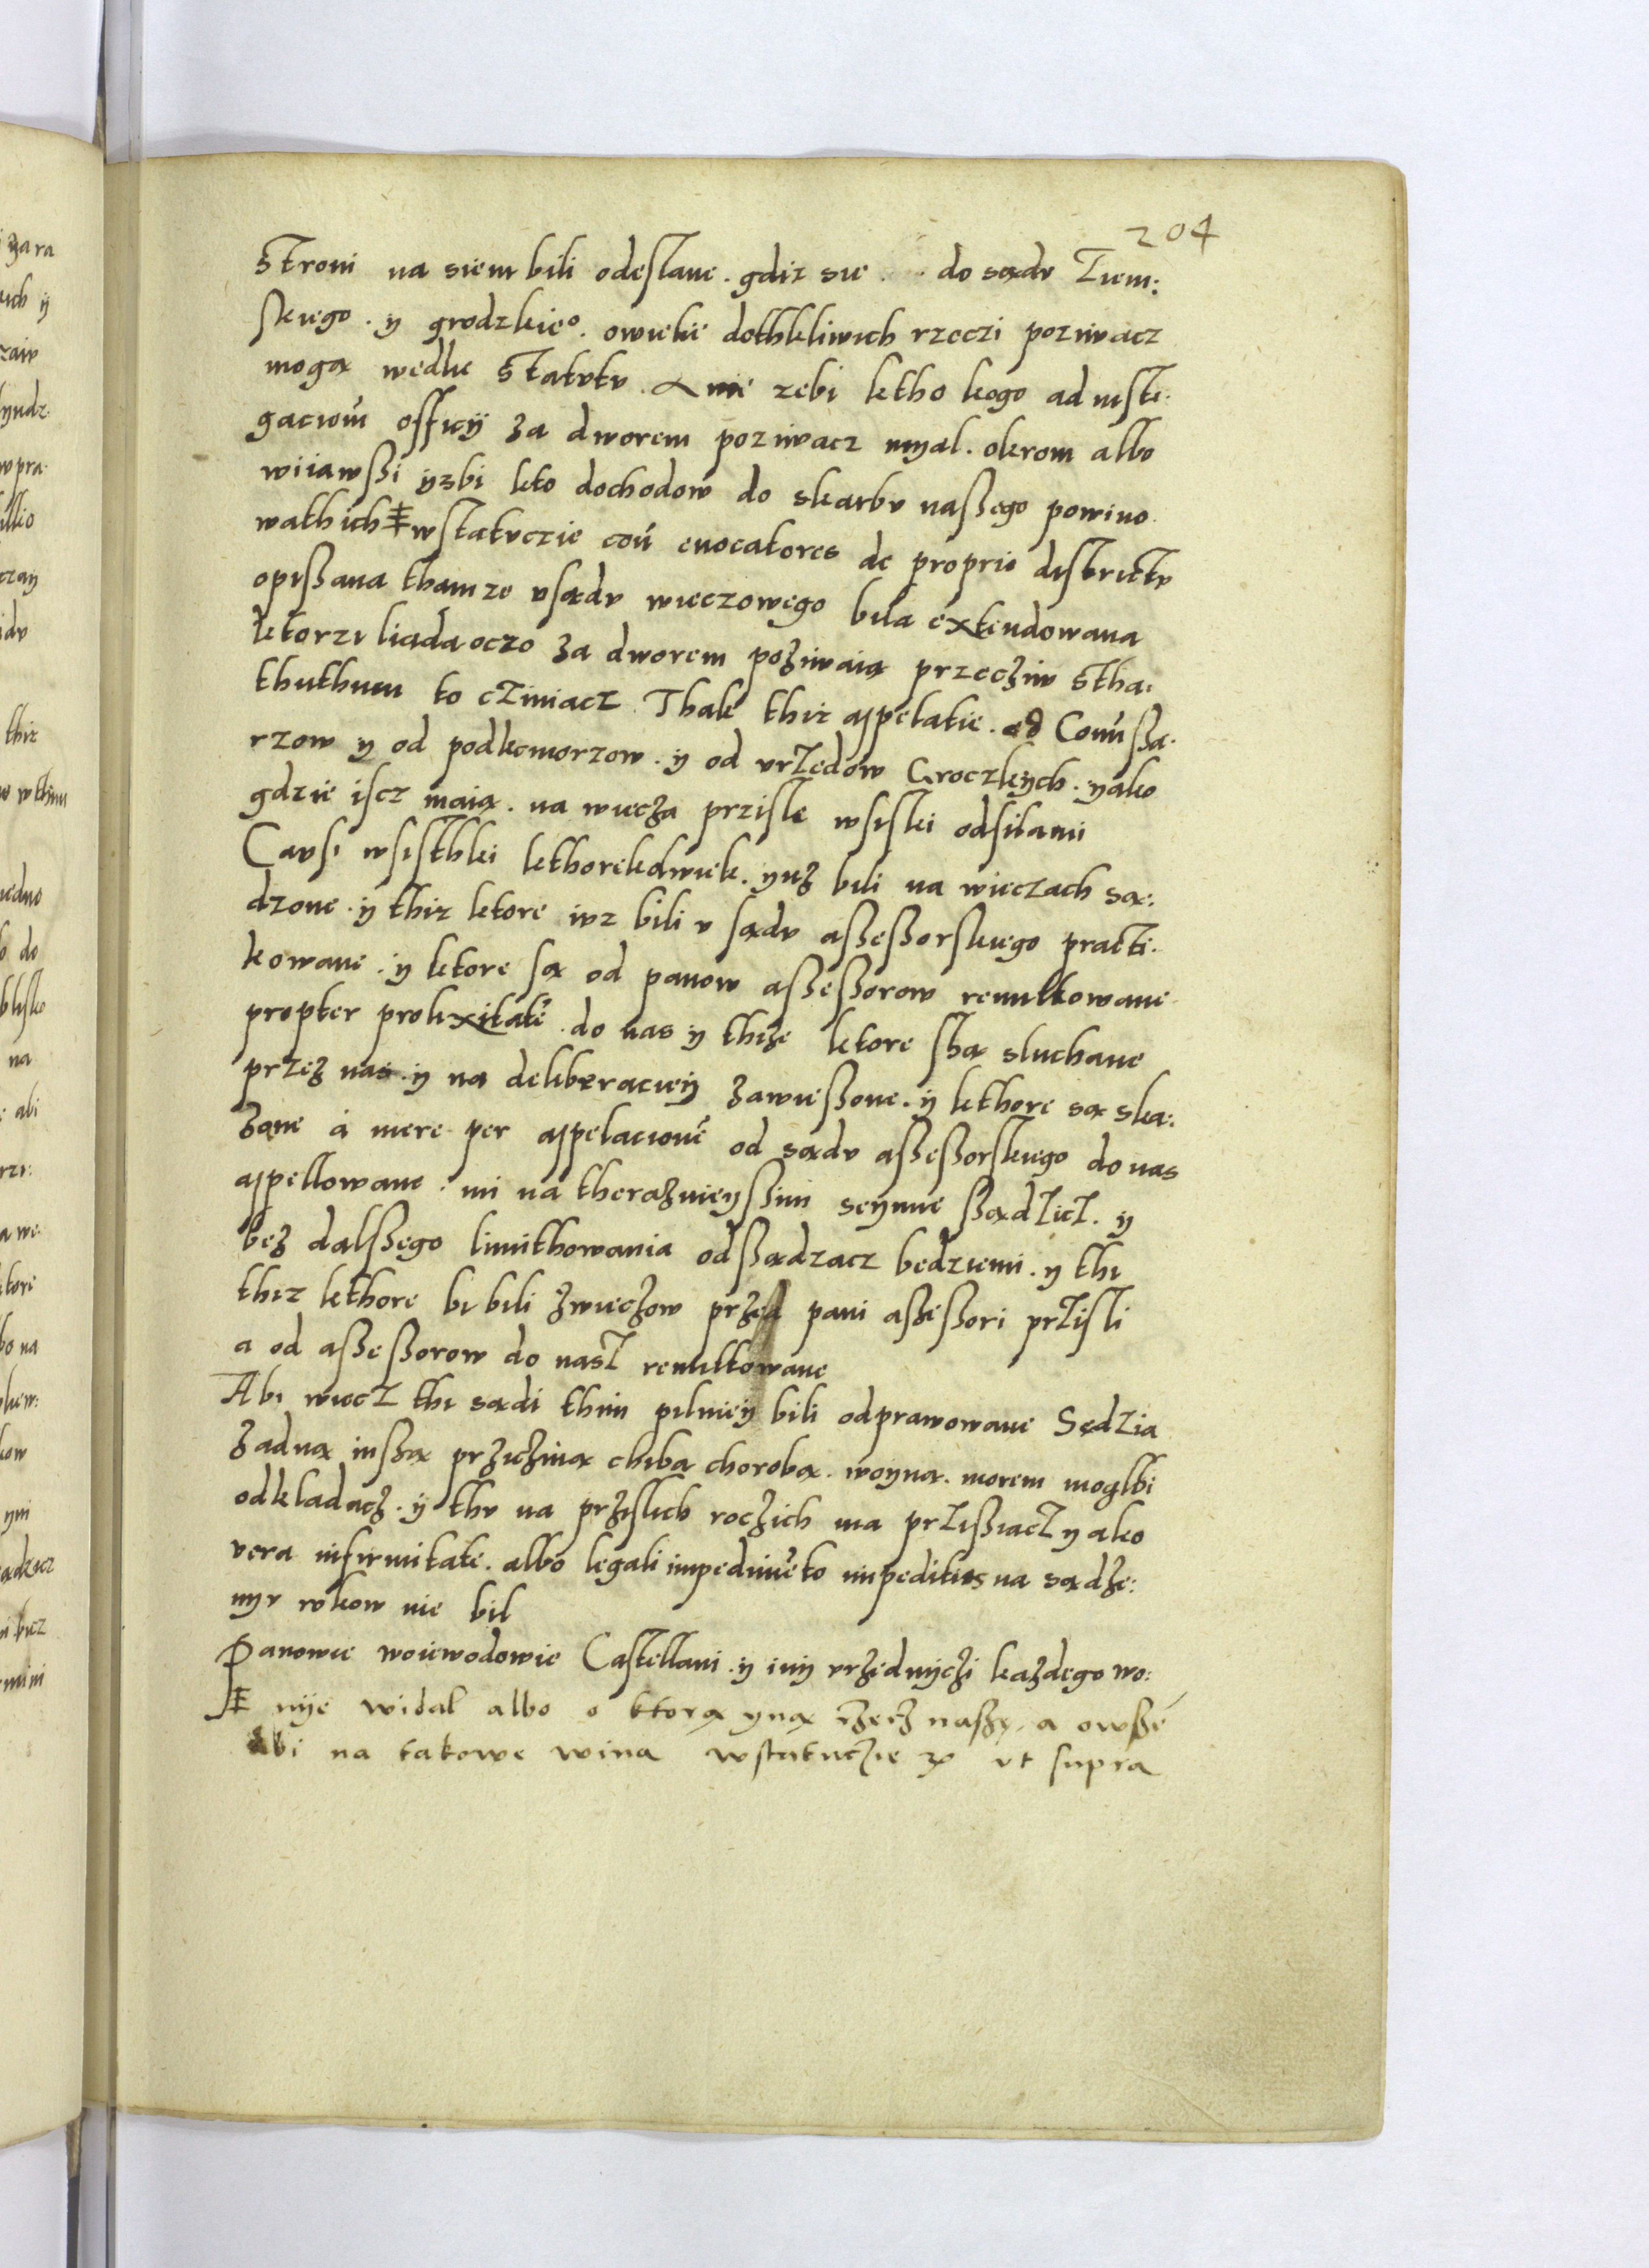 204
Stroni na siem bili odeslane . gdiz sie do sądv Ziem:
skiego . y grodzkie⁰ . o wielie dothkliwich rzeczi poziwacz
mogą wedle Statvtv . A nie zebi ktho kogo ad insti-
gaciom̄ officÿ za dworem poziwacz myal . okrom albo
wiiawßi yzbi kto dochodow do skarbv naßego powino
wathich ǂ wstatvczie con̄ evocatores de proprio districtv
opißana thamze v sądv wieczowego bila extendowana
ktorzi liada oczo za dworem poziwaią przecziw Stha-
thuthum to cziniacz . Thak thiz appelatie . od Com̄ißa-
rzow y od podkomorzow . y od vrzędow Groczkych . yako
gdzie iscz maią . na wiecza przisle wsistki odsilami
Cavsi wsisthki kthorekolwiek . yuz bili na wieczach są:
dzone . y thiz ktore ivz bili v sądv aßeßorskiego practi-
kowane . y ktore są od panow aßeßorow remittowane
propter prolixitatē . do nas y thize ktore są sluchane
przez nas . y na deliberaciey zawießone . y kthore są ska:
zane á mere per appelacionē od sądv aßeßorskiego do nas
appellowane . mi na theraznieyßim seymie ßądzicz . y
bez dalßego limithowania odßądzacz bedziemi . y thi
thiz kthore bi bili zwieczow przed pani aßeßori przisli
a od aßeßorow do nasz remittowane
Abi wiecz thi sądi thim pilniey bili odprawowane Sędzia
zadną inßą prziczina chiba chorobą . woyną . morem moglbi
odkladacz . y thv na przislich roczich ma przißiacz yako
vera infirmitate . albo legali impedimēto impeditus na sądze:
myv rokow nie bil
Panowie woiewodowie Castellani . y iny vrzednyczi kazdego wo:
ǂ nije widal albo o ktorą yną rzecz naszę, a owßē
abi na takowe wina wstatuczie ut supra